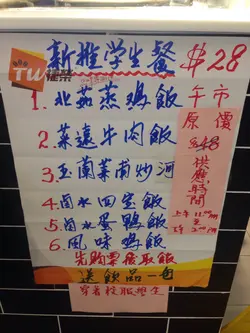 新推学生餐 $28
TW
1. 北菇蒸鸡飯
2. 菜遠牛肉飯
3. 玉蘭菜甫炒河
4. 卤水四宝飯
5. 卤水蛋鴨飯
6. 風味鸡飯
先购票後取飯
送飲品一包
穿着校服學生
午市
原價
$48
供應時間
上午11:00
至